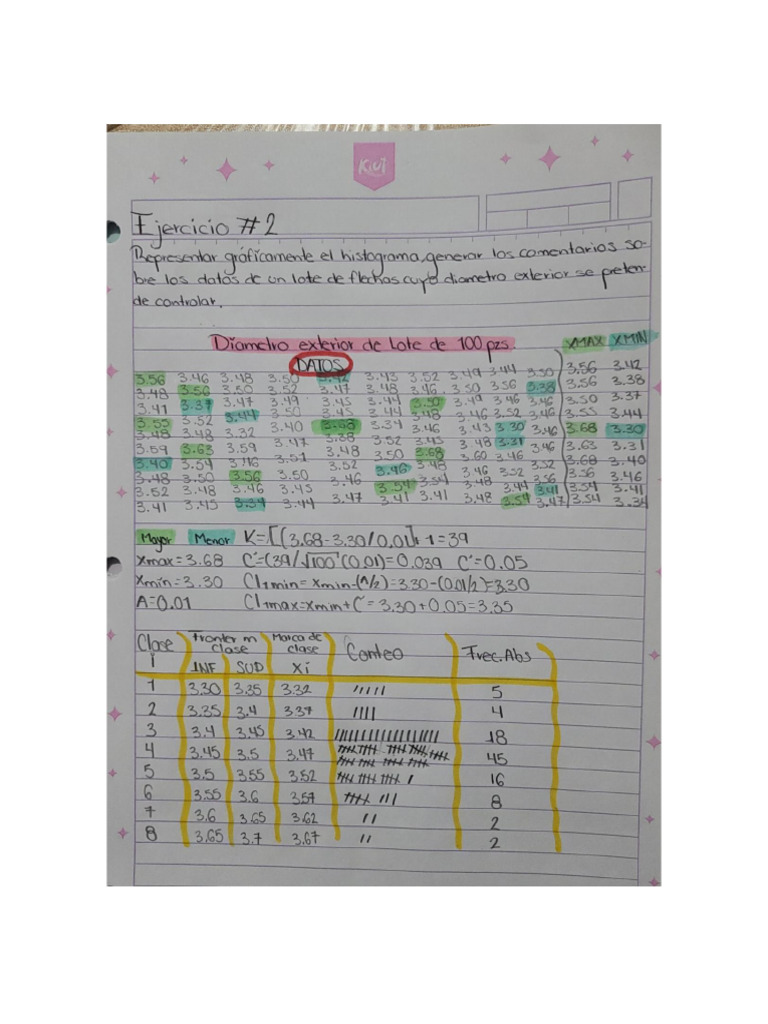 Kiut
Ejercicio #2
Representar gráficamente el histograma, generar los comentarios so-
bre los datos de un lote de flechas cuyo diametro exterior se preten-
de controlar.
Diametro exterior de lote de 100 pzs. XMAX XMIN
DATOS
3.56 3.46 3.48 3.50 3.42 3.43 3.52 3.49 3.44 3.50 3.56 3.42
3.48 3.56 3.50 3.52 3.47 3.48 3.46 3.50 3.56 3.38 3.56 3.38
3.41 3.37 3.47 3.49 3.45 3.44 3.50 3.49 3.46 3.46 3.50 3.37
3.55 3.52 3.44 3.50 3.45 3.44 3.48 3.46 3.52 3.46 3.55 3.44
3.48 3.48 3.32 3.40 3.68 3.34 3.46 3.43 3.30 3.46 3.68 3.30
3.59 3.63 3.59 3.47 3.38 3.52 3.45 3.48 3.31 3.46 3.63 3.31
3.40 3.54 3.46 3.51 3.48 3.50 3.68 3.60 3.46 3.52 3.68 3.40
3.48 3.50 3.56 3.50 3.52 3.46 3.48 3.46 3.52 3.56 3.56 3.46
3.52 3.48 3.46 3.45 3.46 3.54 3.54 3.48 3.44 3.41 3.54 3.41
3.41 3.45 3.34 3.44 3.47 3.41 3.41 3.48 3.54 3.47 3.54 3.34
Mayor Menor K=[(3.68-3.30/0.01]+1=39
Xmax=3.68 C'=(39/√100)(0.01)=0.039 C'=0.05
Xmin=3.30 CI1min=Xmin-(A/2)=3.30-(0.01/2)=3.30
A=0.01 CI1max=Xmin+C'=3.30+0.05=3.35
Clase i Fronter m clase Marca de clase Conteo Frec.Abs
INF SUP Xi
1 3.30 3.35 3.32 ///// 5
2 3.35 3.4 3.37 //// 4
3 3.4 3.45 3.42 ////////////////// 18
4 3.45 3.5 3.47 45
5 3.5 3.55 3.52 16
6 3.55 3.6 3.57 8
7 3.6 3.65 3.62 // 2
8 3.65 3.7 3.67 // 2